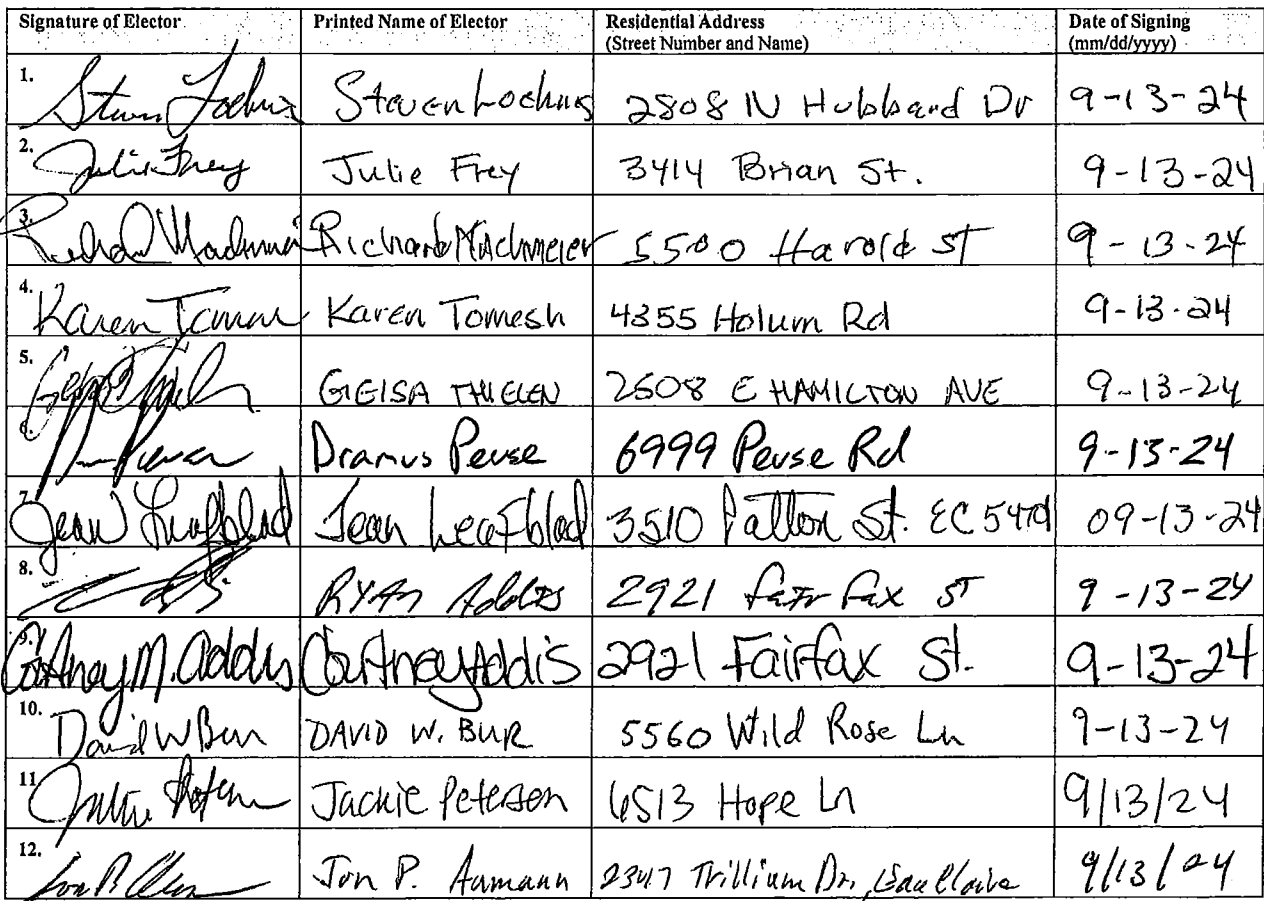 Signature of Elector Printed Name of Elector Residential Address Date of Signing
(Street Number and Name) (mm/dd/yyyy)
1. Steven 2808 N Hubbard Dr 9-13-24
2. Julie Frey Julie Frey 3414 Brian St. 9-13-24
3. Richard Machmeier 5500 Harold St 9-13-24
4. Karen Karen Tomesh 4355 Holum Rd 9-13-24
5. GEISA THIELEN 2608 E HAMILTON AVE 9-13-24
6. Peuse 6999 Peuse Rd 9-13-24
7. Jean Leafblad Jean Leafblad 3510 Patton St. EC 09-13-24
8. RYAN Addis 2921 Fairfax ST 9-13-24
9. Courtney M. Addis Courtney Addis 2921 Fairfax St. 9-13-24
10. David W Bur DAVID W. BUR 5560 Wild Rose Ln 9-13-24
11. Jackie Petersen 6513 Hope Ln 9/13/24
12. Jon P. Aumann 2347 Trillium Dr., Eau Claire 9/13/24